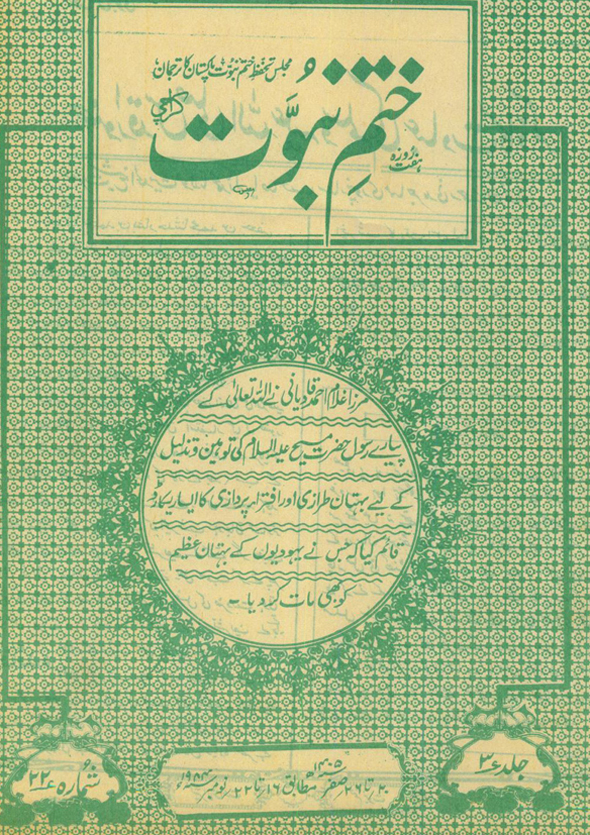 مجلس تحفظ ختم نبوت پاکستان کا ترجمان
ہفت روزہ
ختمِ نبوّت
کراچی
مرزا غلام احمد قادیانی نے اللہ تعالیٰ کے
پیارے رسول حضرت مسیح علیہ السلام کی توہین و تذلیل
کے لیے بہتان طرازی اور افتراء پردازی کا ایسا ریکارڈ
قائم کیا کہ جس نے یہودیوں کے بہتان عظیم
کو بھی مات کر دیا۔
جلد ۳
۲۰ تا ۲۶ صفر ۱۴۰۵ھ مطابق ۱۶ تا ۲۲ نومبر ۱۹۸۴ء
شمارہ ۲۲